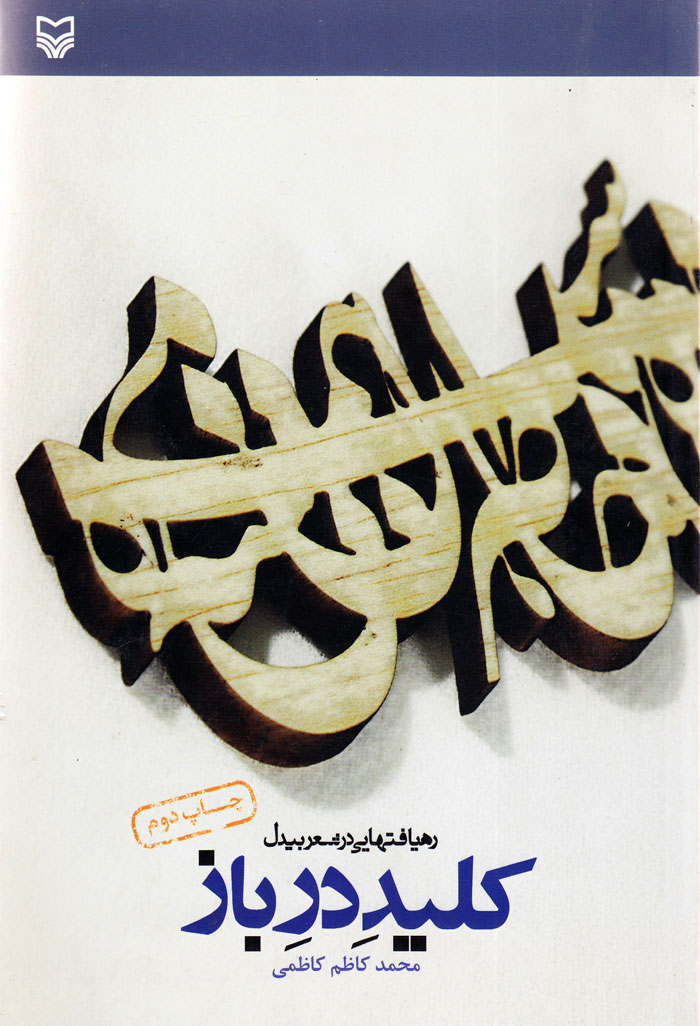 چاپ دوم
رهیافتهایی در شعر بیدل
کلیدِ درِ باز
محمد کاظم کاظمی